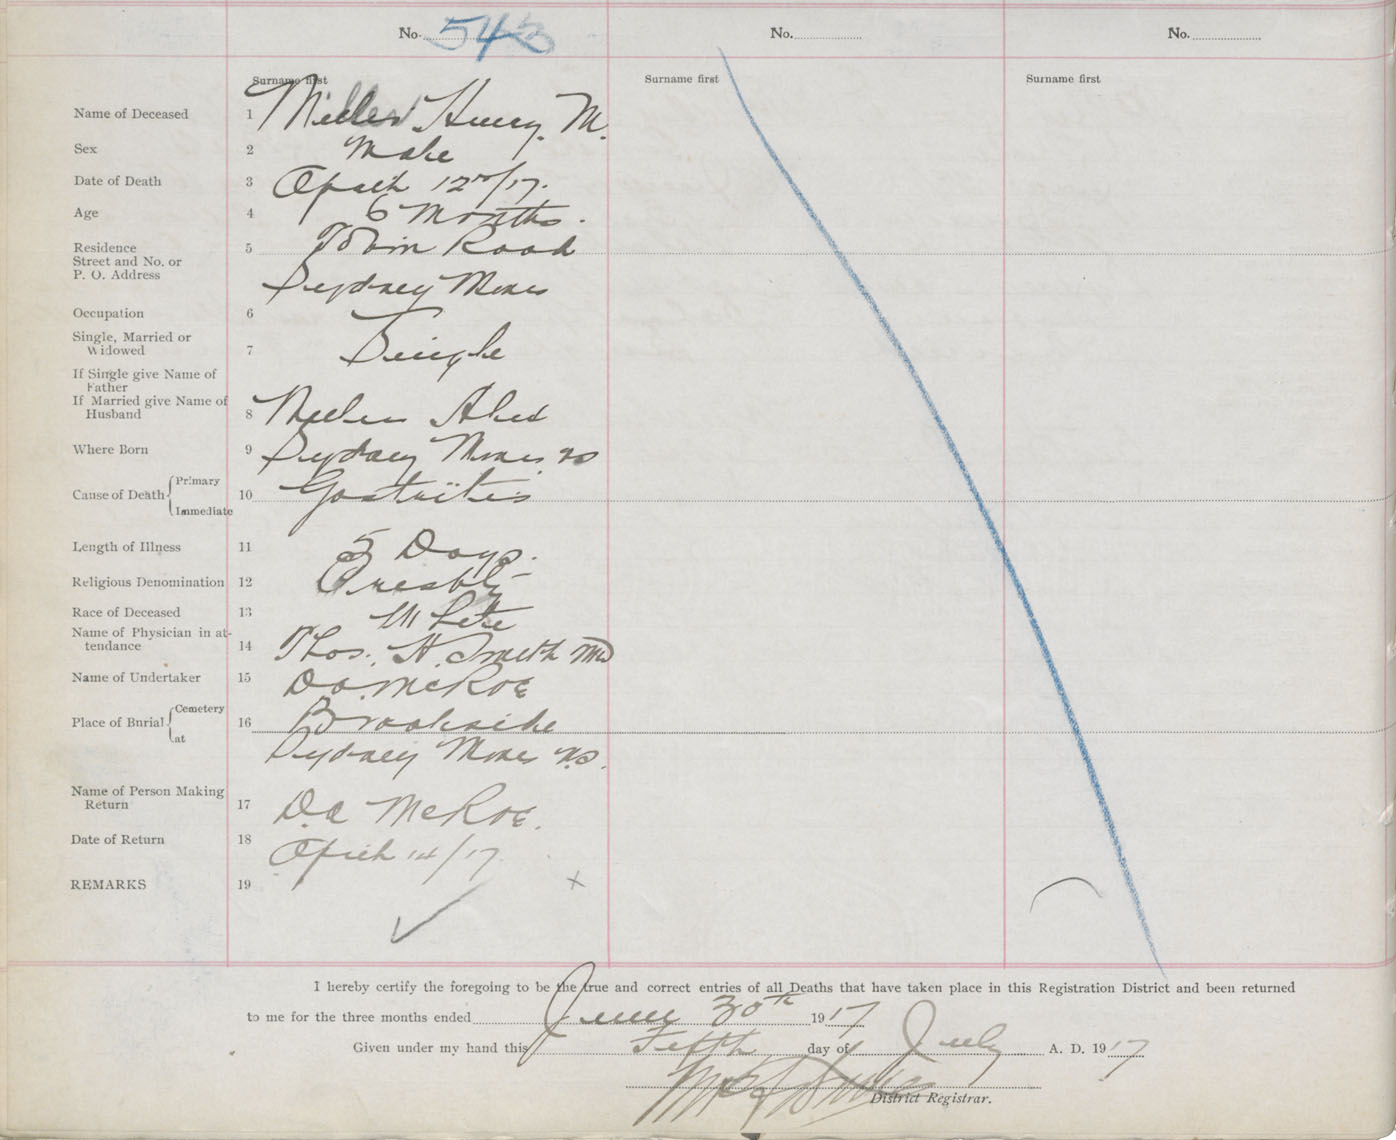 No. 543 No. No.
Surname first Surname first Surname first
Name of Deceased 1 Miller Henry. M.
Sex 2 Male
Date of Death 3 April 12/17.
Age 4 6 Months.
Residence 5 Tobin Road
Street and No. or
P. O. Address Sydney Mines
Occupation 6
Single, Married or
Widowed 7 Single
If Single give Name of
Father
If Married give Name of
Husband 8 Miller Alex
Where Born 9 Sydney Mines NS
Cause of Death Primary 10 Gastritis
Immediate
Length of Illness 11 5 Days.
Religious Denomination 12 Presby-
Race of Deceased 13 White
Name of Physician in at-
tendance 14 Thos. H. Smith MD
Name of Undertaker 15 D.A. McRae
Place of Burial Cemetery 16 Brookside
at Sydney Mines N.S.
Name of Person Making
Return 17 D.A McRae.
Date of Return 18 April 14/17
REMARKS 19
I hereby certify the foregoing to be the true and correct entries of all Deaths that have taken place in this Registration District and been returned
to me for the three months ended June 30th 1917
Given under my hand this Fifth day of July A. D. 1917
District Registrar.